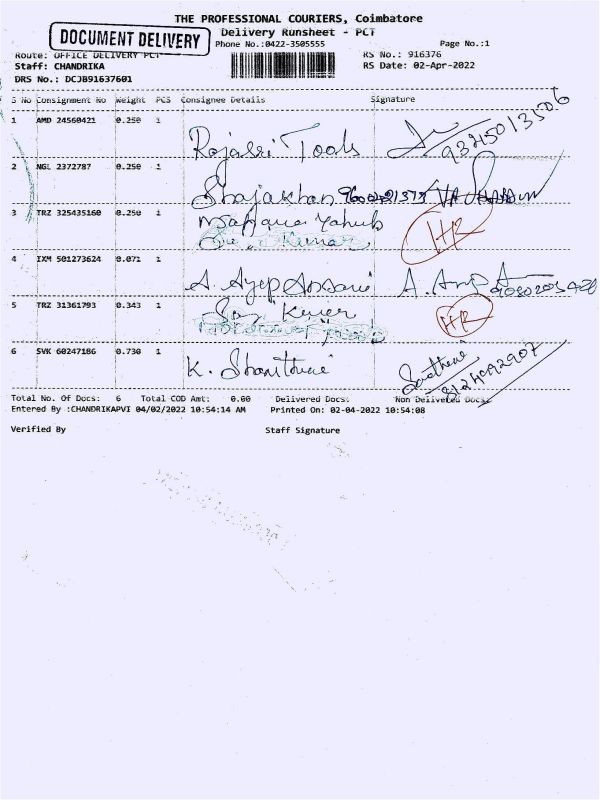 THE PROFESSIONAL COURIERS, Coimbatore
DOCUMENT DELIVERY
Delivery Runsheet - PCT
Phone No.:0422-3505555 Page No.:1
Route: OFFICE DELIVERY PCT RS No.: 916376
Staff: CHANDRIKA RS Date: 02-Apr-2022
DRS No.: DCJB91637601
S No Consignment No Weight PCS Consignee Details Signature
1 AMD 24560421 0.250 1
Rajasri Tools 9345013506
2 NGL 2372787 0.250 1
Shajakhan
3 TRZ 325435160 0.250 1
Kumar HR
4 IXM 501273624 0.071 1
A. Ayep Ansari A.
5 TRZ 31361793 0.343 1
HR
6 SVK 60247186 0.730 1
K. Shanthini 8124992907
Total No. Of Docs: 6 Total COD Amt: 0.00 Delivered Docs: Non Delivered Docs:
Entered By :CHANDRIKAPVI 04/02/2022 10:54:14 AM Printed On: 02-04-2022 10:54:08
Verified By Staff Signature